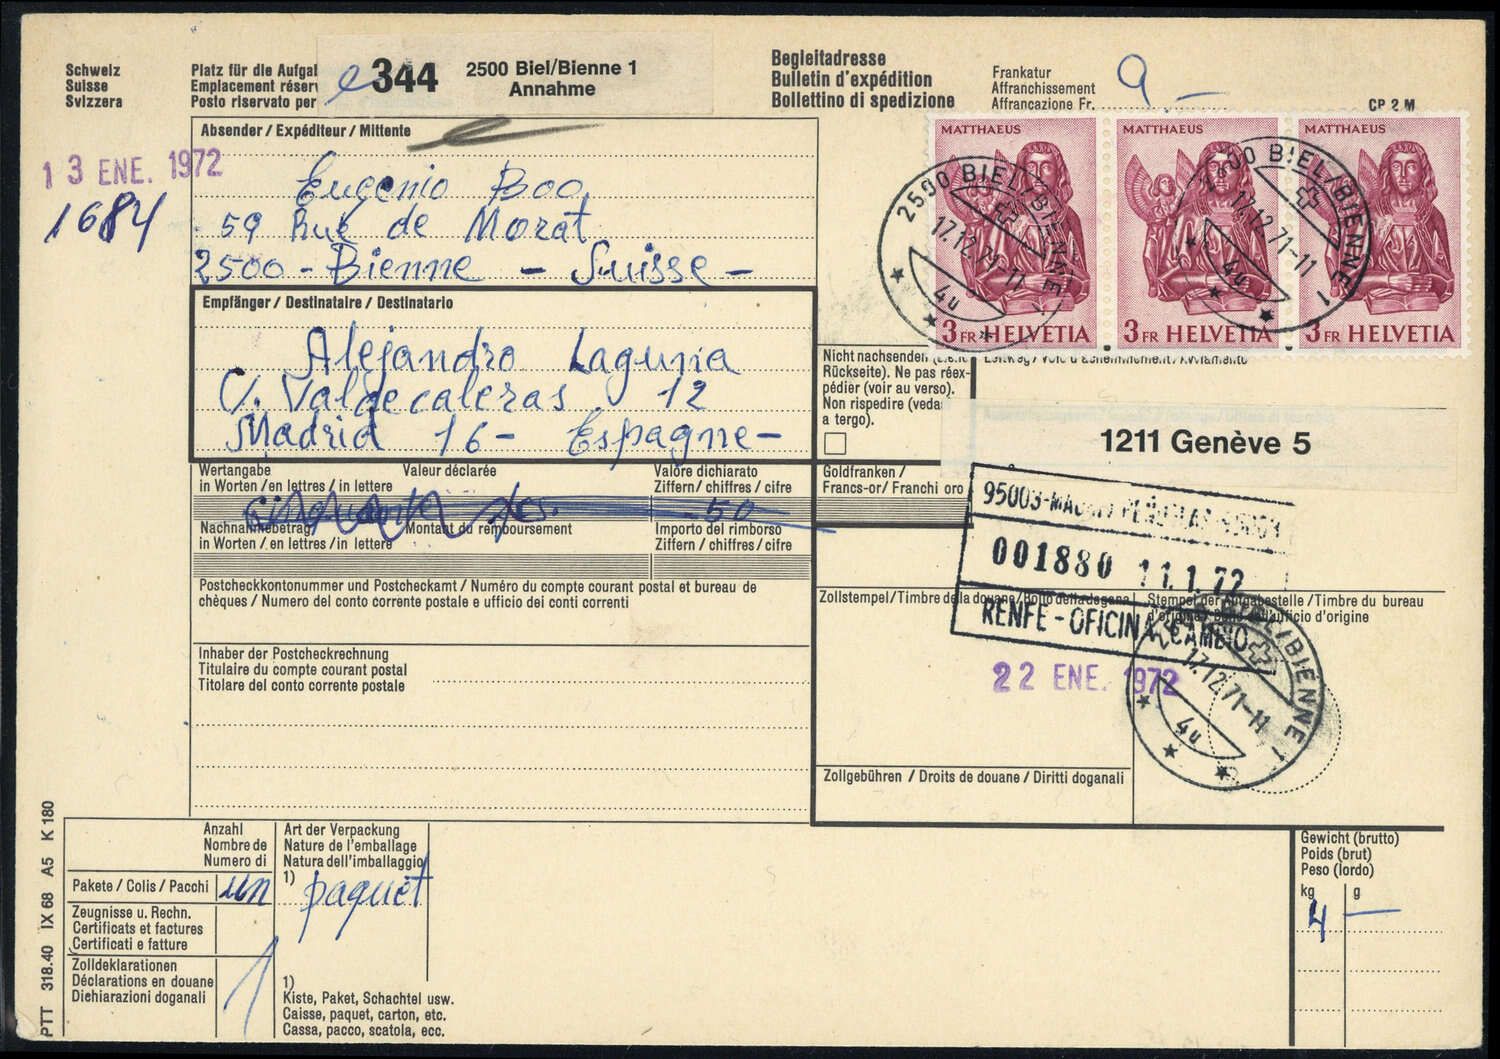 Schweiz
Suisse
Svizzera
Platz für die Aufgal
Emplacement réserv
Posto riservato per
344
2500 Biel/Bienne 1
Annahme
Begleitadresse
Bulletin d'expédition
Bollettino di spedizione
Frankatur
Affranchissement
Affrancazione Fr.
9.-
CP 2 M
Absender / Expéditeur / Mittente
13 ENE. 1972
1684
Eugenio Boo
59 Rue de Morat
2500 - Bienne - Suisse -
MATTHAEUS
3 FR HELVETIA
MATTHAEUS
3 FR HELVETIA
MATTHAEUS
3 FR HELVETIA
2500 BIEL/BIENNE 1
17.12.71-11
4u
2500 BIEL/BIENNE 1
17.12.71-11
4u
Empfänger / Destinataire / Destinatario
Alejandro Laguna
C/. Valdecaleras 12
Madrid 16 - Espagne -
Nicht nachsenden
Rückseite). Ne pas réex-
pédier (voir au verso).
Non rispedire (veda
a tergo).
1211 Genève 5
Wertangabe Valeur déclarée Valore dichiarato
in Worten / en lettres / in lettere Ziffern / chiffres / cifre
50
Nachnahmebetrag Montant du remboursement Importo del rimborso
in Worten / en lettres / in lettere Ziffern / chiffres / cifre
Goldfranken /
Francs-or / Franchi oro
95003-MA
001880 11.1.72
RENFE - OFICINA CAMBIO
Postcheckkontonummer und Postcheckamt / Numéro du compte courant postal et bureau de
chèques / Numero del conto corrente postale e ufficio dei conti correnti
Zollstempel / Timbre de la douane / Bollo della dogana
Stempel der Aufgabestelle / Timbre du bureau
d'origine / Bollo dell'ufficio d'origine
22 ENE. 1972
BIEL/BIENNE 1
17.12.71-11
4u
Inhaber der Postcheckrechnung
Titulaire du compte courant postal
Titolare del conto corrente postale
Zollgebühren / Droits de douane / Diritti doganali
Anzahl
Nombre de
Numero di
Art der Verpackung
Nature de l'emballage
Natura dell'imballaggio
Pakete / Colis / Pacchi
un
1)
paquet
Zeugnisse u. Rechn.
Certificats et factures
Certificati e fatture
Zolldeklarationen
Déclarations en douane
Dichiarazioni doganali
1
1)
Kiste, Paket, Schachtel usw.
Caisse, paquet, carton, etc.
Cassa, pacco, scatola, ecc.
Gewicht (brutto)
Poids (brut)
Peso (lordo)
kg g
4 -
PTT 318.40 IX 68 A5 K 180